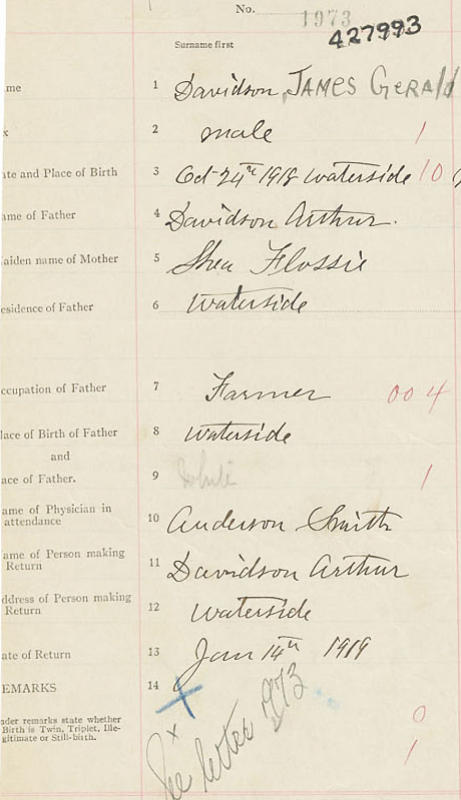 No. 1973
427993
Surname first
me 1 Davidson, JAMES GERALD
x 2 male 1
ate and Place of Birth 3 Oct 24th 1918 Waterside 10
ame of Father 4 Davidson Arthur.
aiden name of Mother 5 Shea Flossie
esidence of Father 6 Waterside
ccupation of Father 7 Farmer 00 4
lace of Birth of Father 8 Waterside
and
ace of Father. 9 White 1
ame of Physician in
attendance 10 Anderson Smith
ame of Person making
Return 11 Davidson Arthur
ddress of Person making
Return 12 Waterside
ate of Return 13 Jan 14th 1919
EMARKS 14
x
See letter 1973
nder remarks state whether
Birth is Twin, Triplet, Ille-
gitimate or Still-birth.
0
1